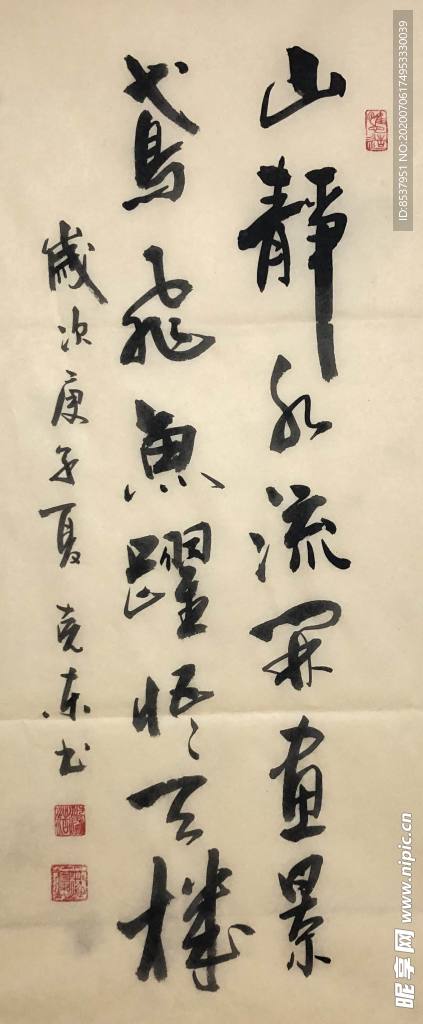 山靜水流開畫景
鳶飛魚躍悟天機
歲次庚子夏 克东书
ID:8537951 NO:20200706174953330039
昵享网 www.nipic.cn